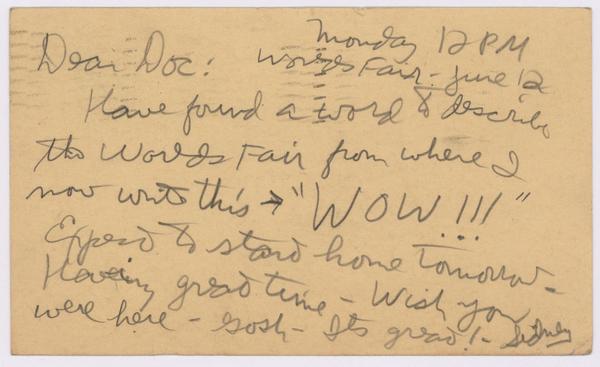 Monday 12 PM
Worlds Fair - June 12
Dear Doc:
Have found a word to describe
the Worlds Fair from where I
now write this → "WOW!!!"
Expect to start home tomorrow -
Having great time - Wish you
were here - Gosh - Its great! - Sidney